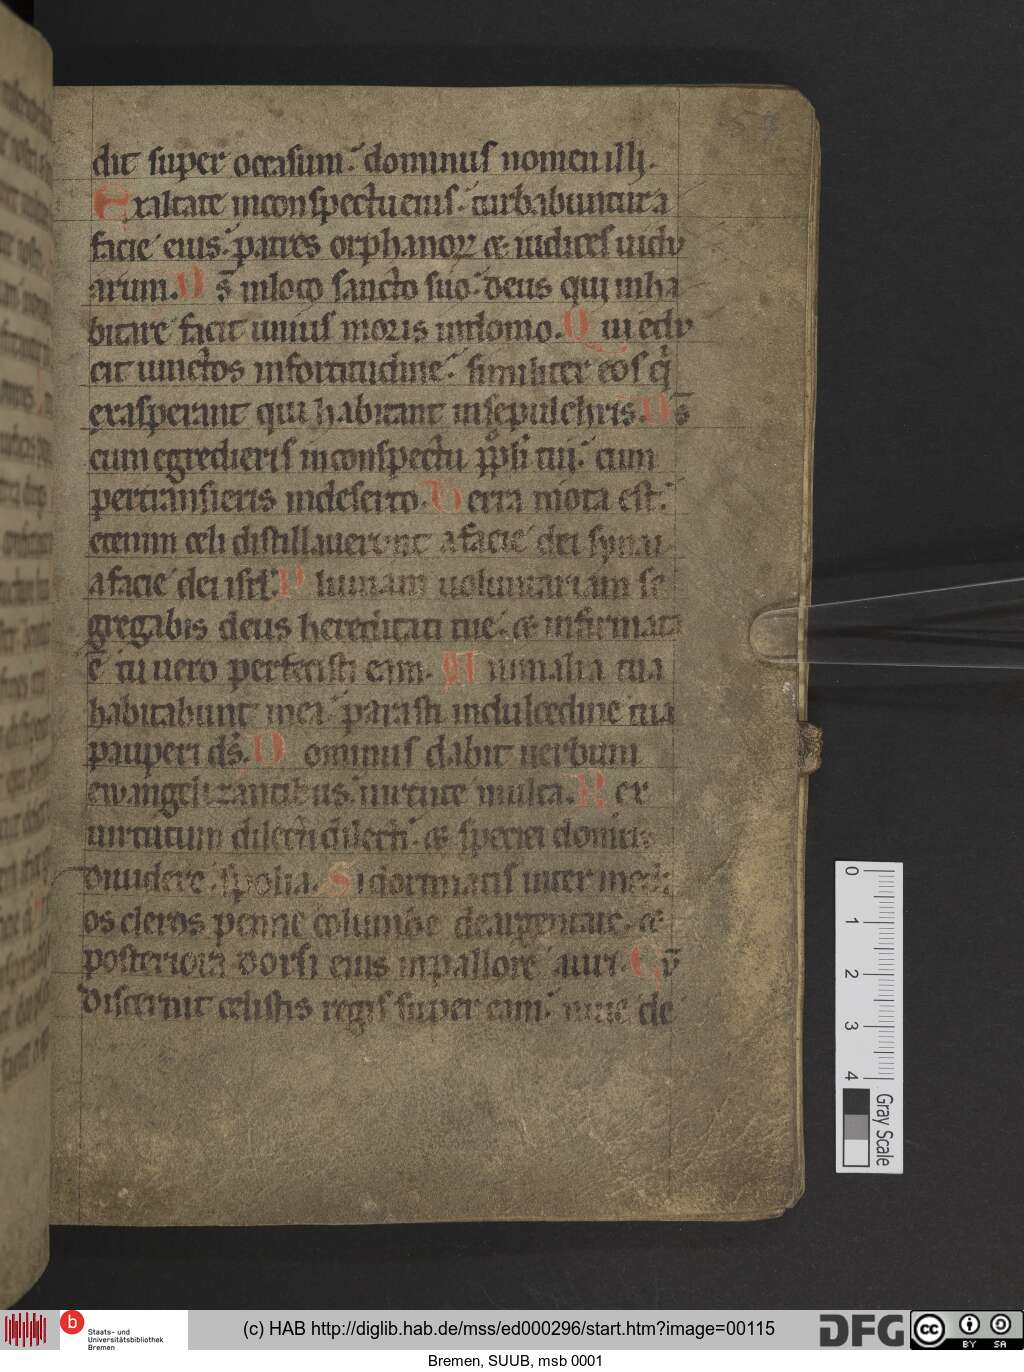 dit super occasum. dominus nomen illi.
Exaltate inconspectu eius. turbabuntur a
facie eius. patres orphanoꝝ & iudices uidu
arum. Ds̄ inloco sancto suo. deus qui inha
bitare facit unius moris indomo. Qui edu
cit uinctos infortitudine. similiter eos q̇
exasperant qui habitant insepulchris. Ds̄
cum egredieris inconspectu ppl̓i tui. cum
pertransieris indeserto. Terra mota est.
etenim celi distillauerunt afacie dei synai
afacie dei isrl̓. Pluuiam uoluntariam se
gregabis deus hereditati tue. & infirmata
ē tu uero perfecisti eam. Animalia tua
habitabunt inea. parasti indulcedine tua
pauperi ds̄. Dominus dabit uerbum
ewangelizantibus. uirtute multa. Rex
uirtutum dilecti dilecti. & speciei domus
diuidere. spolia. Si dormiatis inter medi
os cleros penne columbe deargentate. &
posteriora dorsi eius inpallore auri. Cū
discernit celestis reges super eam. niue de
0
1
2
3
4
Gray Scale
b
Staats- und
Universitätsbibliothek
Bremen
(c) HAB http://diglib.hab.de/mss/ed000296/start.htm?image=00115
DFG
cc
BY
SA
Bremen, SUUB, msb 0001